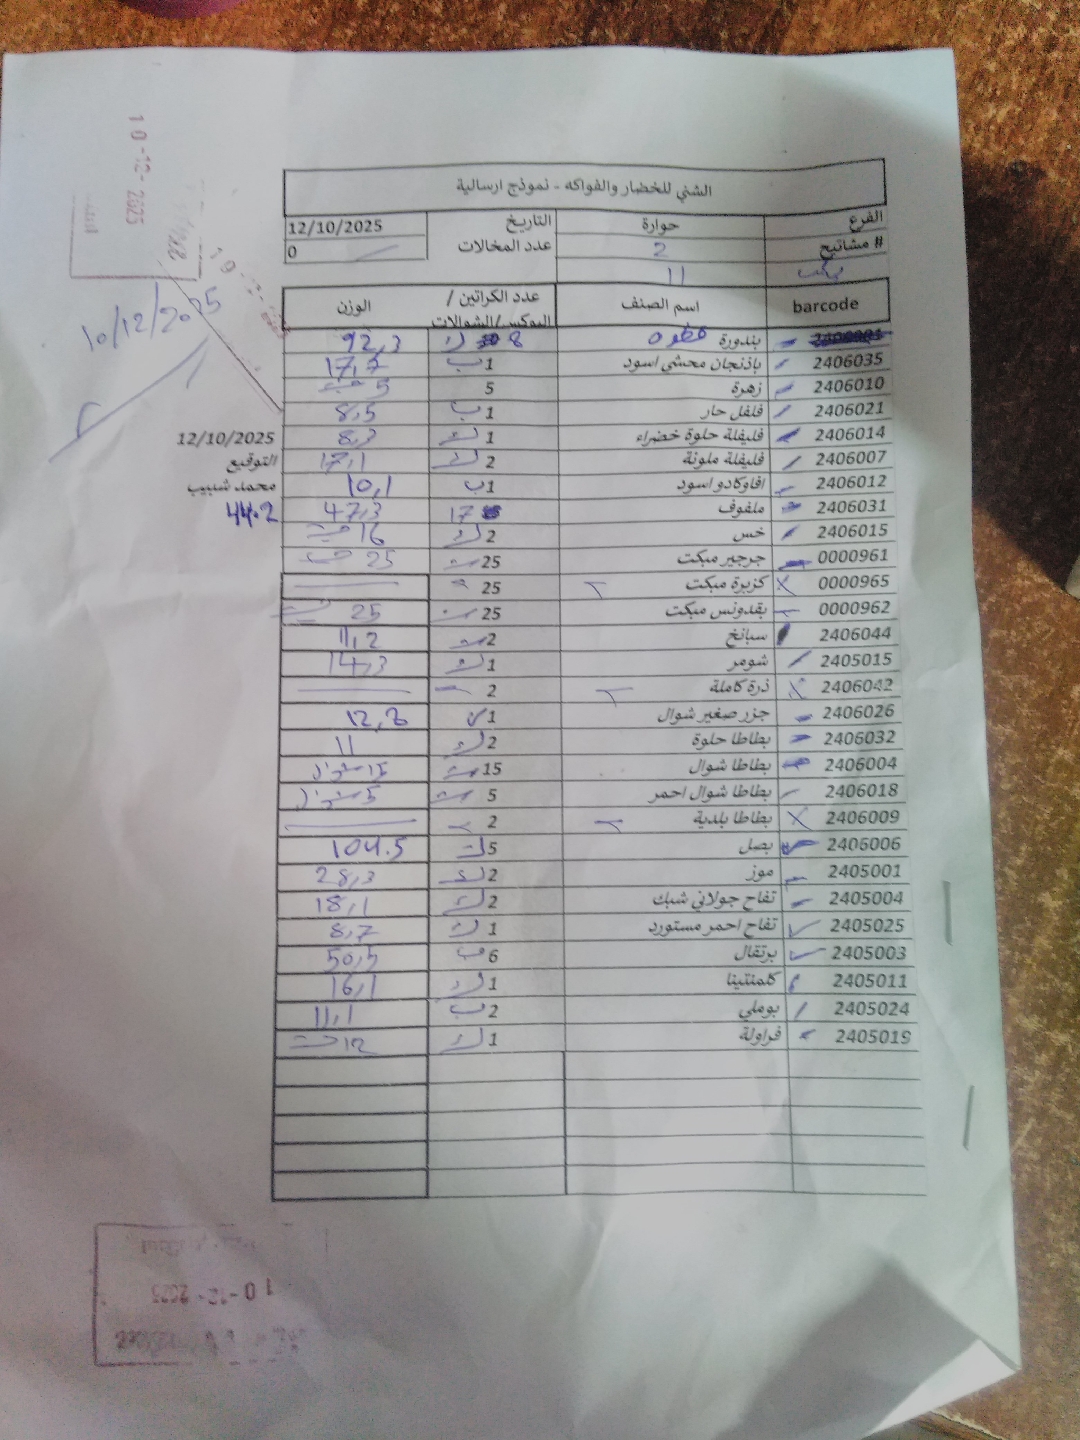 10-12-2025
الشني للخضار والفواكه - نموذج ارسالية
الفرع حوارة التاريخ 12/10/2025
# مشاتيح 2 عدد المخالات 0
11
barcode اسم الصنف عدد الكراتين / البوكس/الشوالات الوزن
بندورة 8 ك 92,3
2406035 باذنجان محشي اسود 1 ب 17,7
2406010 زهرة 5 5
2406021 فلفل حار 1 ب 8,5
2406014 فليفلة حلوة خضراء 1 ك 8,3
2406007 فليفلة ملونة 2 ك 17,1
2406012 افاوكادو اسود 1 ب 10,1
2406031 ملفوف 17 47,3
2406015 خس 2 ك 16
0000961 جرجير مبكت 25 25
0000965 كزبرة مبكت 25
0000962 بقدونس مبكت 25 25
2406044 سبانخ 2 11,2
2405015 شومر 1 ك 14,3
2406042 ذرة كاملة 2
2406026 جزر صغير شوال 1 12,8
2406032 بطاطا حلوة 2 ك 11
2406004 بطاطا شوال 15 15
2406018 بطاطا شوال احمر 5 5
2406009 بطاطا بلدية 2
2406006 بصل 5 ك 104.5
2405001 موز 2 ك 28,3
2405004 تفاح جولاني شبك 2 ك 18,1
2405025 تفاح احمر مستورد 1 ك 8,7
2405003 برتقال 6 ب 50,5
2405011 كلمنتينا 1 ك 16,1
2405024 بوملي 2 ب 11,1
2405019 فراولة 1 ك 12
10/12/2025
12/10/2025
التوقيع
محمد شبيب
44.2
10-12-2025